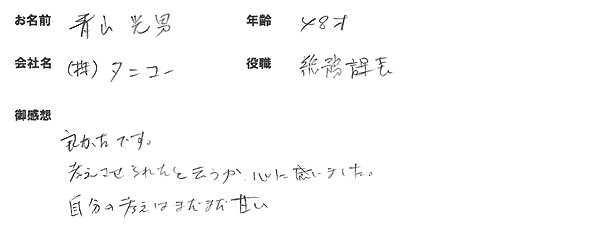 お名前 青山 光男 年齢 48才
会社名 (株)タニコー 役職 総務課長
御感想
良かったです。
考えさせられたと云うか、心に感じました。
自分の考えはまだまだ甘い